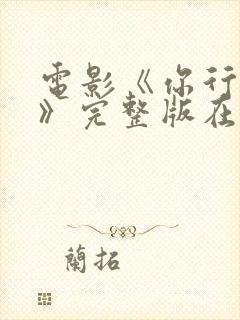 電影《你行
》完整版在
蘭拓